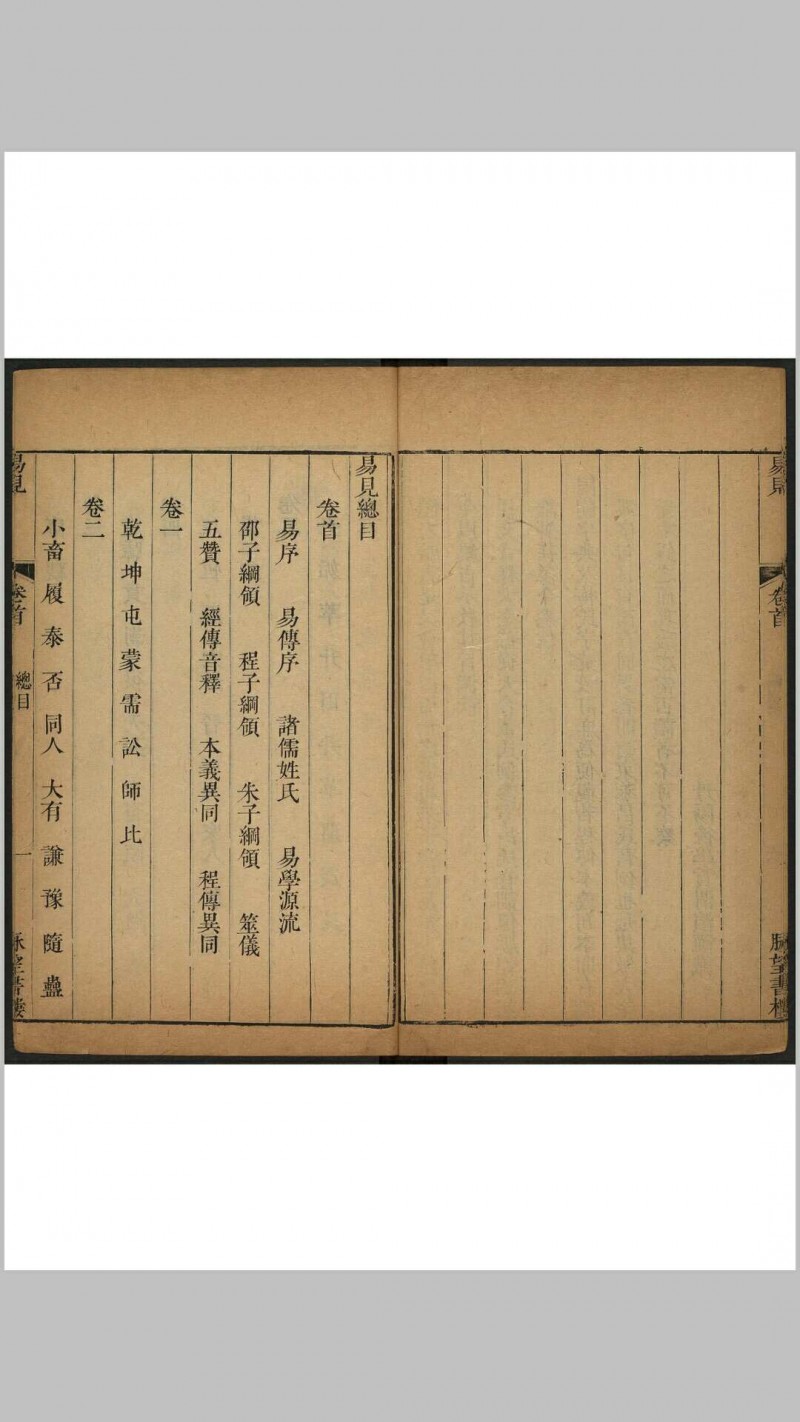 易見
卷首
脈望書樓
易見總目
卷首
易序 易傳序 諸儒姓氏 易學源流
邵子綱領 程子綱領 朱子綱領 筮儀
五贊 經傳音釋 本義異同 程傳異同
卷一
乾 坤 屯 蒙 需 訟 師 比
卷二
小畜 履 泰 否 同人 大有 謙 豫 隨 蠱
易見
卷首
總目
一
脈望書樓